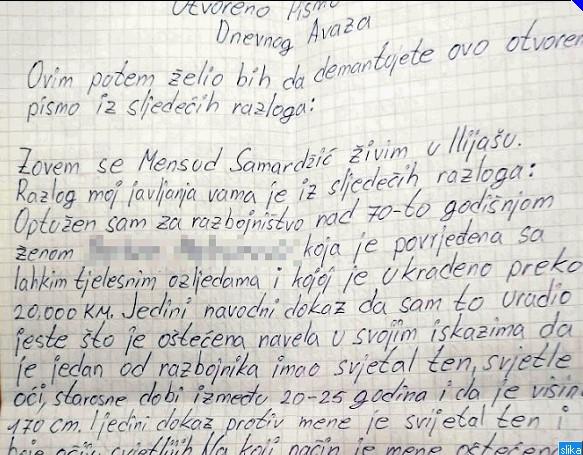 Otvoreno Pismo
Dnevnog Avaza
Ovim potem želio bih da demantujete ovo otvoren
pismo iz sljedećih razloga:
Zovem se Mensud Samardžić živim u Ilijašu.
Razlog moj javljanja vama je iz sljedećih razloga:
Optužen sam za razbojništvo nad 70-to godišnjom
ženom koja je povrjeđena sa
lahkim tjelesnim ozljedama i kojoj je ukradeno preko
20.000 KM. Jedini navodni dokaz da sam to uradio
jeste što je oštećena navela u svojim iskazima da
je jedan od razbojnika imao svjetal ten, svjetle
oči, starosne dobi između 20-25 godina i da je visin
170 cm. I jedini dokaz protiv mene je svijetal ten i
boje očiju svjetlih Na koji način je mene oštećena
slika